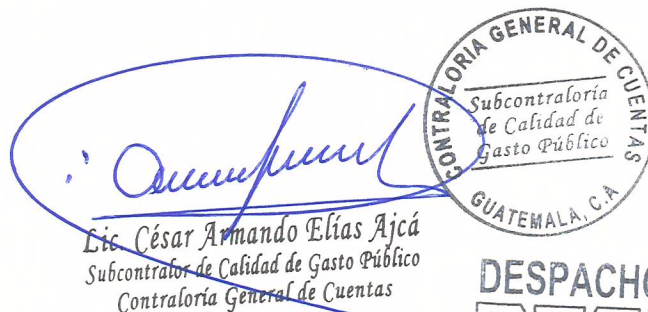 CONTRALORIA GENERAL DE CUENTAS
Subcontraloría
de Calidad de
Gasto Público
GUATEMALA, C.A
Lic. César Armando Elías Ajcá
Subcontralor de Calidad de Gasto Público
Contraloría General de Cuentas
DESPACHO